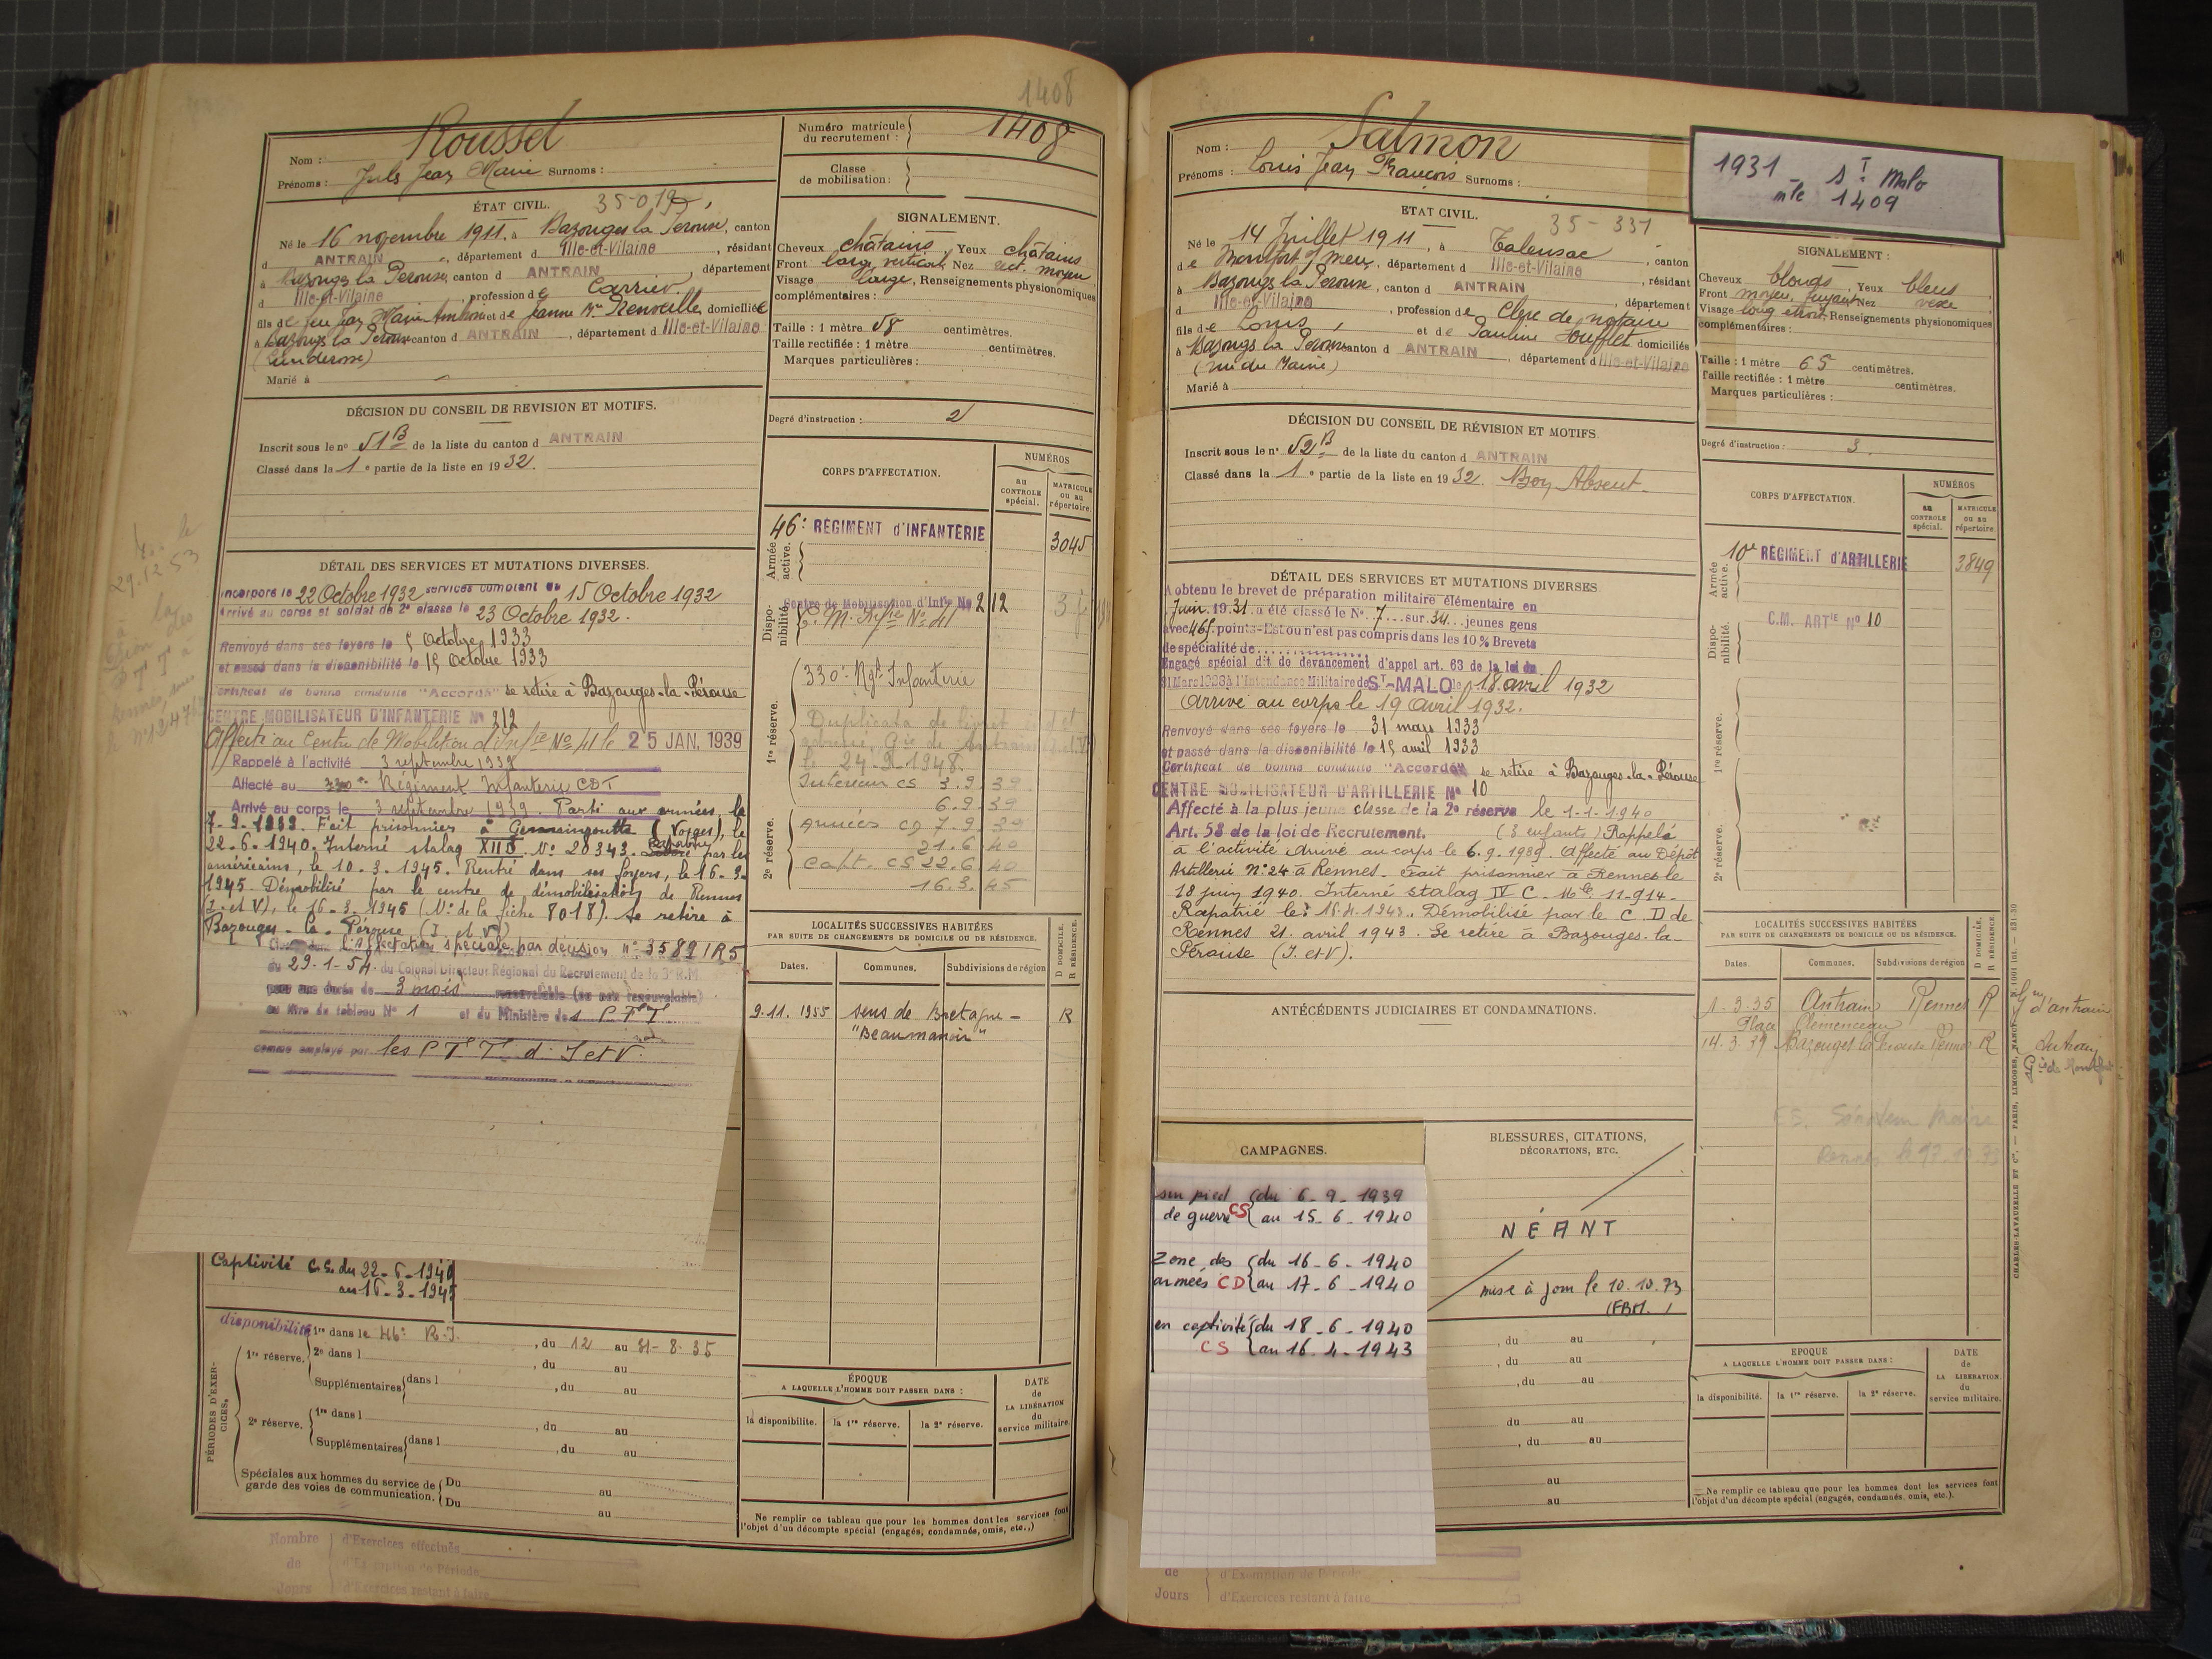 1408
Nom : Roussel
Prénoms : Jules Jean Marie Surnoms :
Numéro matricule du recrutement : 1408
Classe de mobilisation :
ÉTAT CIVIL. 35-019
Né le 16 novembre 1911, à Bazouges la Pérouse, canton
d ANTRAIN, département d Ille-et-Vilaine, résidant
à Bazouges la Pérouse, canton d ANTRAIN, département
d Ille-et-Vilaine, profession de Carrier
fils de feu Jean Marie Ambroise et de Jeanne Mie, domiciliée
à Bazouges la Pérouse canton d ANTRAIN, département d Ille-et-Vilaine
Marié à
SIGNALEMENT.
Cheveux châtains, Yeux châtains
Front large vertical, Nez rect. moyen
Visage large, Renseignements physionomiques
complémentaires :
Taille : 1 mètre 58 centimètres.
Taille rectifiée : 1 mètre centimètres.
Marques particulières :
Degré d'instruction : 2
DÉCISION DU CONSEIL DE REVISION ET MOTIFS.
Inscrit sous le no 51 B de la liste du canton d ANTRAIN
Classé dans la 1 e partie de la liste en 1932.
CORPS D'AFFECTATION.
NUMÉROS
au CONTROLE spécial.
MATRICULE ou au répertoire.
Armée active.
46e RÉGIMENT d'INFANTERIE 3045
Disponibilité.
Centre de Mobilisation d'Infie No 212
C. M. Infie No 41
1re réserve.
330e Rgt Infanterie
Duplicata de livret
le 24-9-1948.
Intérieur CS 3.9.39
6.9.39
2e réserve.
Armées CD 7.9.39
21.6.40
Capt. CS 22.6.40
16.3.45
DÉTAIL DES SERVICES ET MUTATIONS DIVERSES.
Incorporé le 22 Octobre 1932 services comptant du 15 Octobre 1932
Arrivé au corps et soldat de 2e classe le 23 Octobre 1932.
Renvoyé dans ses foyers le 5 Octobre 1933
et passé dans la disponibilité le 15 Octobre 1933
Certificat de bonne conduite "Accordé" se retire à Bazouges-la-Pérouse
CENTRE MOBILISATEUR D'INFANTERIE No 212
Affecté au Centre de Mobilisation d'Infie No 41 le 25 JAN. 1939
Rappelé à l'activité 3 septembre 1939
Affecté au 330e Régiment Infanterie CDT
Arrivé au corps le 3 septembre 1939. Parti aux armées, le
7-9-1939. Fait prisonnier à Germaingoutte (Vosges), le
22-6-1940. Interné stalag XII No 20343. Libéré par les
américains, le 10-3-1945. Rentré dans ses foyers, le 16-3-
1945. Démobilisé par le centre de démobilisation de Rennes
(I. et V), le 16-3-1945 (No de la fiche 8018). Se retire à
Bazouges-la-Pérouse (I. et V)
Classé dans l'Affectation spéciale par décision no 3589/R5
du 29-1-54. du Colonel Directeur Régional du Recrutement de la 3e R.M.
pour une durée de 3 mois renouvelable (ou non renouvelable)
au titre de tableau No 1 et du Ministère des P T T
comme employé par les P T T d'I et V.
29.12.53
LOCALITÉS SUCCESSIVES HABITÉES
PAR SUITE DE CHANGEMENTS DE DOMICILE OU DE RÉSIDENCE.
D DOMICILE. R RÉSIDENCE
Dates. Communes. Subdivisions de région
9.11.1955 sens de Bretagne - R
"Beaumanoir"
Captivité C.S. du 22-6-1940
au 16-3-1945
PÉRIODES D'EXERCICES.
disponibilité
1re réserve. 1re dans le 46e R.I., du 12 au 31-8-35
2e dans l , du au
Supplémentaires dans l , du au
2e réserve. 1re dans l , du au
Supplémentaires dans l , du au
Spéciales aux hommes du service de garde des voies de communication. Du au
Du au
ÉPOQUE
A LAQUELLE L'HOMME DOIT PASSER DANS :
la disponibilité. la 1re réserve. la 2e réserve.
DATE de LA LIBÉRATION du service militaire.
Ne remplir ce tableau que pour les hommes dont les services font
l'objet d'un décompte spécial (engagés, condamnés, omis, etc.,)
Nombre de Jours
d'Exercices effectués
d'Exemption de Période
d'Exercices restant à faire
Nom : Salmon
Prénoms : Louis Jean François Surnoms :
1931 - St Malo
mle 1409
ETAT CIVIL. 35-331
Né le 14 Juillet 1911, à Talensac, canton
de Montfort s/ Meu, département d Ille-et-Vilaine, résidant
à Bazouges la Pérouse, canton d ANTRAIN, département
d Ille-et-Vilaine, profession de Clerc de notaire
fils de Louis, et de Pauline Houfflet domiciliés
à Bazouges la Pérouse canton d ANTRAIN, département d Ille-et-Vilaine
(rue du Maine)
Marié à
SIGNALEMENT :
Cheveux blonds, Yeux bleus
Front moyen, fuyant Nez vexe
Visage long étroit, Renseignements physionomiques
complémentaires :
Taille : 1 mètre 65 centimètres.
Taille rectifiée : 1 mètre centimètres.
Marques particulières :
Degré d'instruction : 3.
DÉCISION DU CONSEIL DE RÉVISION ET MOTIFS
Inscrit sous le no 52 B de la liste du canton d ANTRAIN
Classé dans la 1 e partie de la liste en 1932. Bon Absent.
CORPS D'AFFECTATION.
NUMÉROS
au CONTROLE spécial.
MATRICULE ou au répertoire
Armée active.
10e RÉGIMENT d'ARTILLERIE 3849
Disponibilité.
C.M. ARTIE No 10
1re réserve.
2e réserve.
DÉTAIL DES SERVICES ET MUTATIONS DIVERSES
A obtenu le brevet de préparation militaire élémentaire en
Juin 1931 a été classé le No 7 sur 34 jeunes gens
avec 465 points - Est ou n'est pas compris dans les 10% Brevets
de spécialité de
Engagé spécial dit de devancement d'appel art. 63 de la loi du
31 Mars 1928 à l'Intendance Militaire de ST-MALO le 18 avril 1932
Arrivé au corps le 19 avril 1932.
Renvoyé dans ses foyers le 31 mars 1933
et passé dans la disponibilité le 15 avril 1933
Certificat de bonne conduite "Accordé" se retire à Bazouges-la-Pérouse
CENTRE MOBILISATEUR D'ARTILLERIE No 10
Affecté à la plus jeune classe de la 2e réserve le 1-1-1940
Art. 58 de la loi de Recrutement. (3 enfants) Rappelé
à l'activité arrivé au corps le 6.9.1939. Affecté au Dépôt
Artillerie No 24 à Rennes. Fait prisonnier à Rennes le
18 juin 1940. Interné stalag IV C. Mle 11.914.
Rapatrié le 16.4.1943. Démobilisé par le C D de
Rennes 21. avril 1943. Se retire à Bazouges-la-
Pérouse (I. et V).
ANTÉCÉDENTS JUDICIAIRES ET CONDAMNATIONS.
LOCALITÉS SUCCESSIVES HABITÉES
PAR SUITE DE CHANGEMENTS DE DOMICILE OU DE RÉSIDENCE.
D DOMICILE. R RÉSIDENCE
Dates. Communes. Subdivisions de région
1-3-35 Antrain Rennes R d'antrain
Place Clemenceau
14.3.39 Bazouges la Pérouse Rennes R Antrain
CHARLES-LAVAUZELLE ET Cie. — PARIS, LIMOGES, NANCY
CAMPAGNES.
sur pied de guerre CS du 6-9-1939
au 15-6-1940
zone des armées CD du 16-6-1940
au 17-6-1940
en captivité CS du 18-6-1940
au 16.4-1943
BLESSURES, CITATIONS,
DÉCORATIONS, ETC.
NÉANT
mise à jour le 10.10.73
, du au
, du au
, du au
du au
, du au
au
au
EPOQUE
A LAQUELLE L'HOMME DOIT PASSER DANS :
la disponibilité. la 1re réserve. la 2e réserve.
DATE de LA LIBÉRATION du service militaire.
Ne remplir ce tableau que pour les hommes dont les services font
l'objet d'un décompte spécial (engagés, condamnés, omis, etc.).
de Jours
d'Exemption de Période
d'Exercices restant à faire